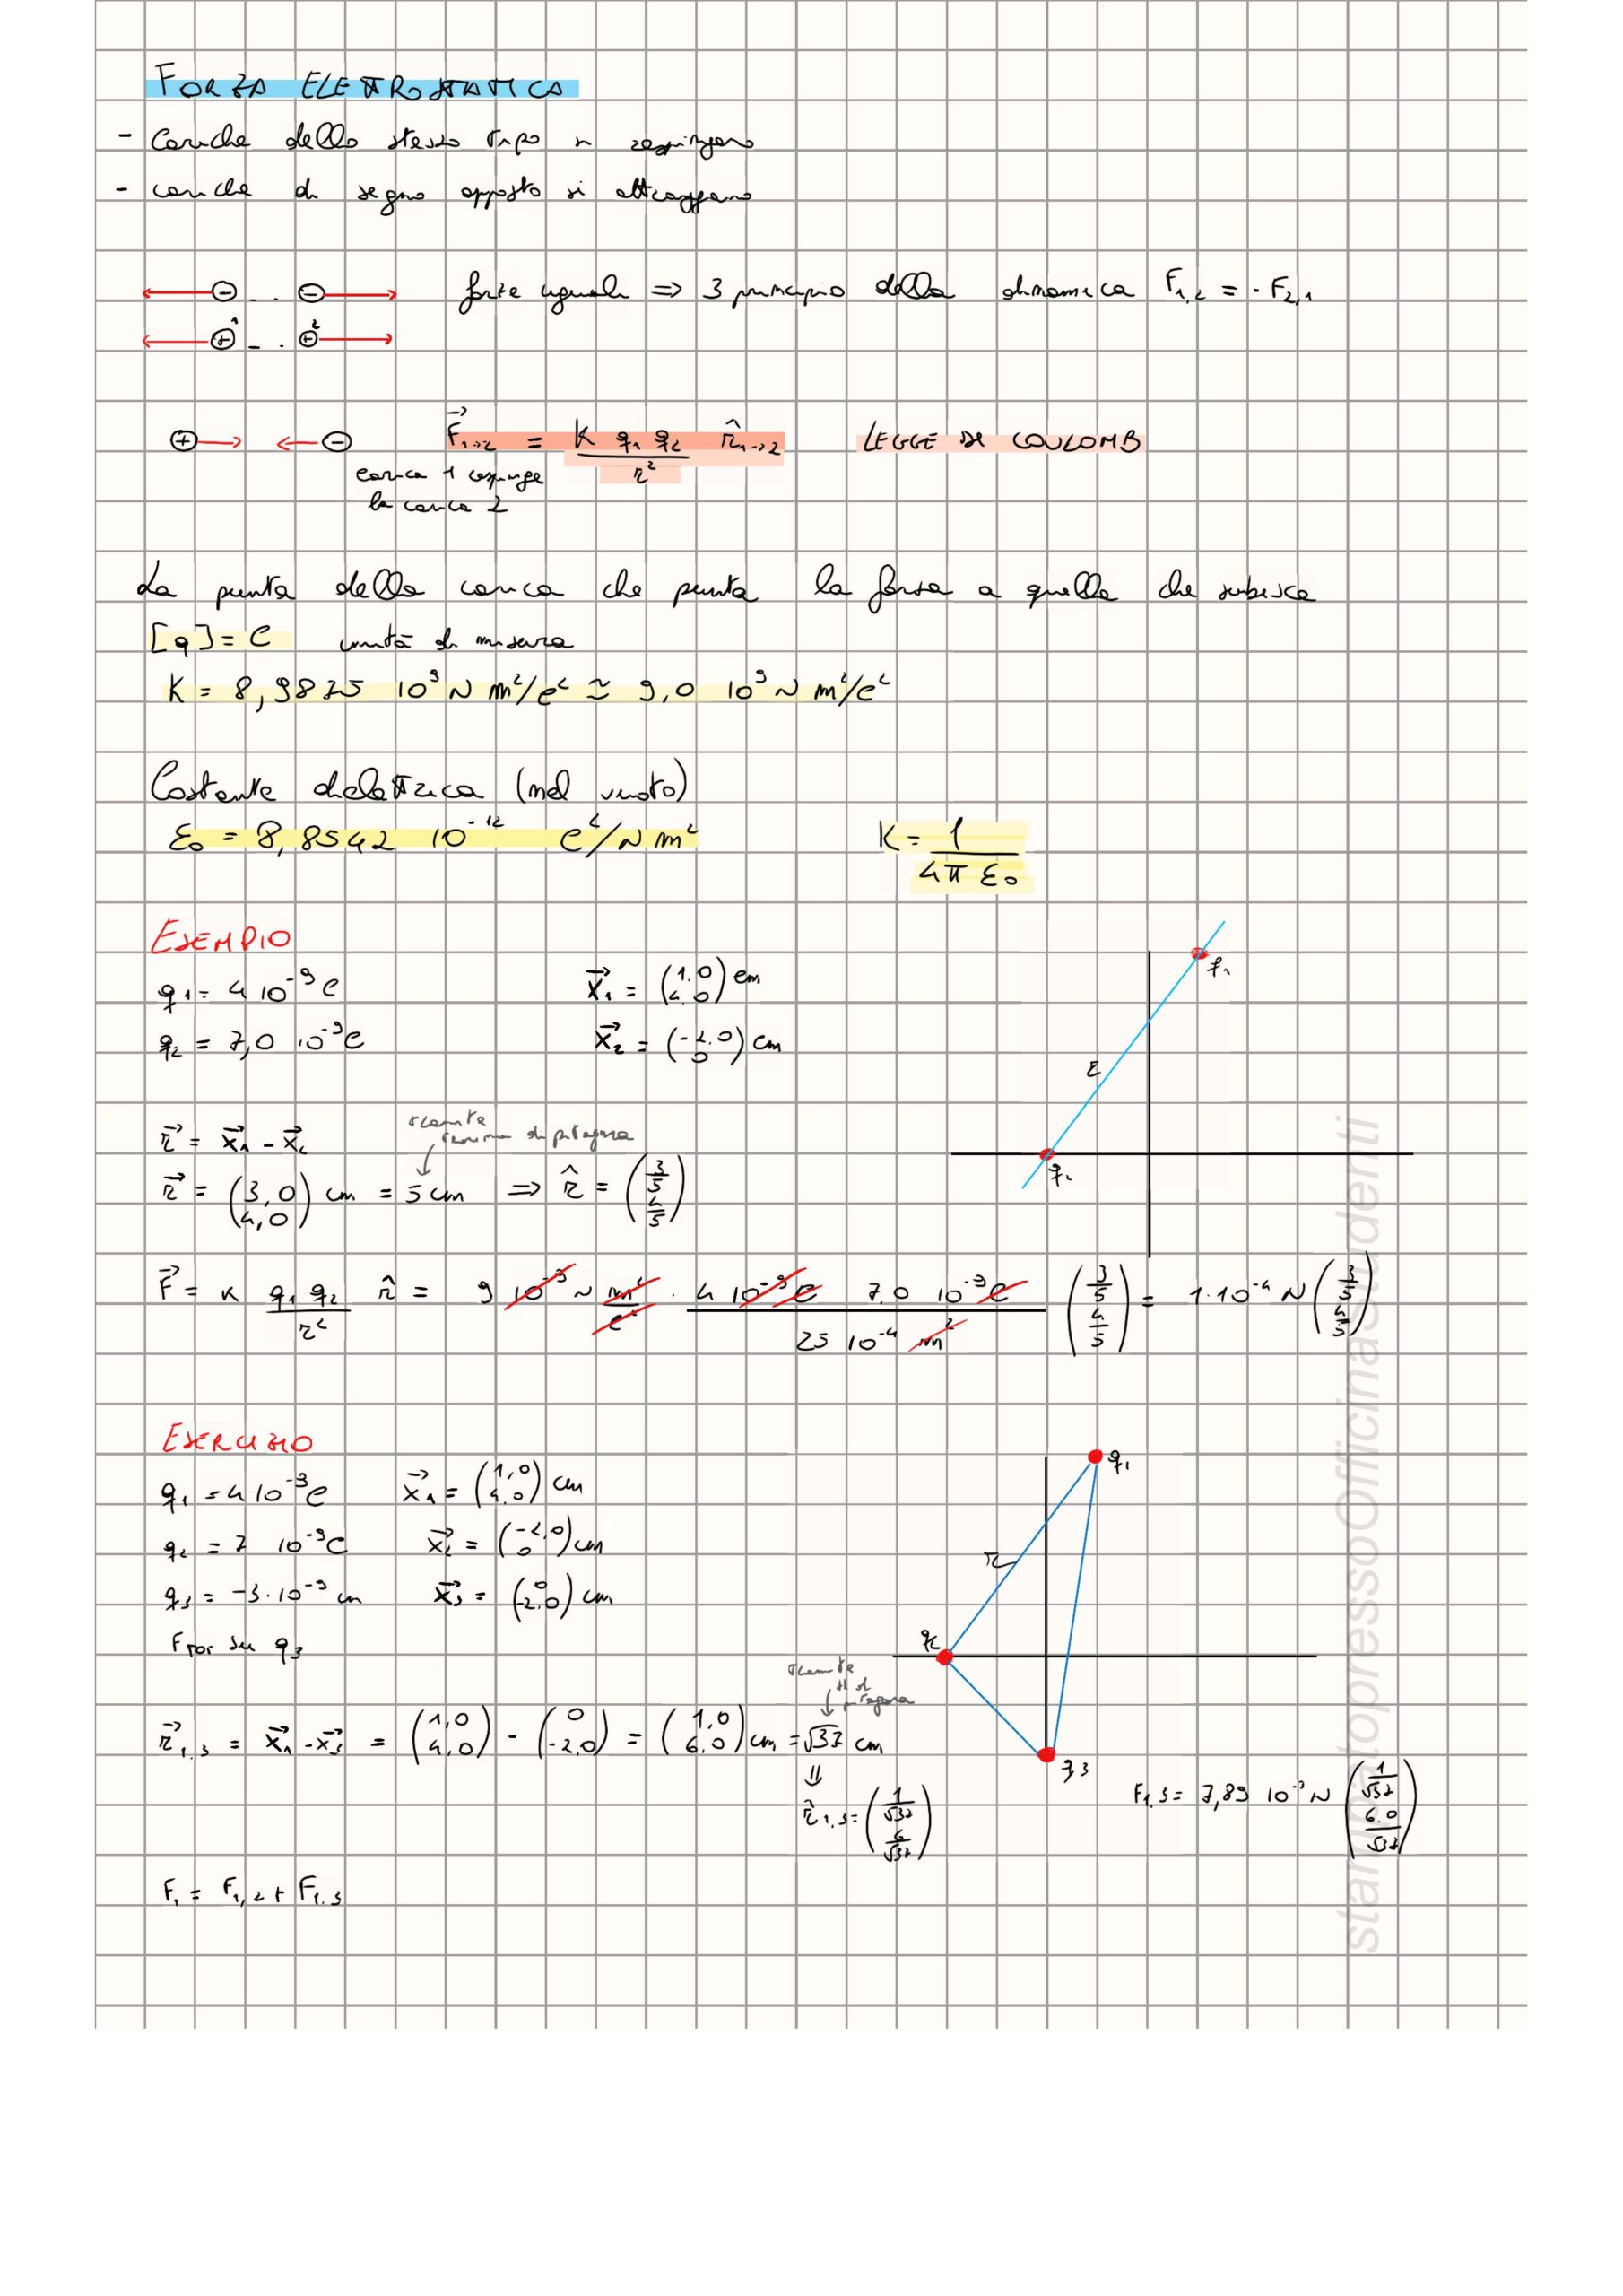 FORZA ELETTROSTATICA
- Cariche dello stesso tipo si respingono
- cariche di segno opposto si attraggono
forze uguali => 3 principio della dinamica F₁,₂ = - F₂,₁
F⃗₁→₂ = K q₁ q₂ / r² r̂₁→₂ LEGGE DI COULOMB
carica 1 respinge
la carica 2
La punta della carica che punta la forza a quella che subisce
[q] = C unità di misura
K = 8,9875 10⁹ N m²/C² ≃ 9,0 10⁹ N m²/C²
Costante dielettrica (nel vuoto)
ε₀ = 8,8542 10⁻¹² C²/N m² K = 1 / 4π ε₀
ESEMPIO
q₁ = 4 10⁻⁹ C x⃗₁ = (1,0 4,0) cm
q₂ = 7,0 10⁻⁹ C x⃗₂ = (-2,0 0) cm
q₁
r
q₂
r⃗ = x⃗₁ - x⃗₂
tramite
teorema di pitagora
r⃗ = (3,0 4,0) cm = 5 cm => r̂ = (3/5 4/5)
F⃗ = K q₁ q₂ / r² r̂ = 9 10⁻⁹ N m²/C² · 4 10⁻⁹ C 7,0 10⁻⁹ C / 25 10⁻⁴ m² (3/5 4/5) = 1·10⁻⁴ N (3/5 4/5)
ESERCIZIO
q₁ = 4 10⁻⁹ C x⃗₁ = (1,0 4,0) cm
q₂ = 7 10⁻⁹ C x⃗₂ = (-2,0 0) cm
q₃ = -3·10⁻⁹ cm x⃗₃ = (0 -2,0) cm
F tot su q₃
q₁
r
q₂
q₃
tramite
th di
pitagora
r⃗₁,₃ = x⃗₁ - x⃗₃ = (1,0 4,0) - (0 -2,0) = (1,0 6,0) cm = √37 cm
⇓
r̂₁,₃ = (1/√37 6/√37)
F₁,₃ = 7,89 10⁻⁵ N (1/√37 6,0/√37)
F₁ = F₁,₂ + F₁,₃
stampatopressoOfficinaStudenti